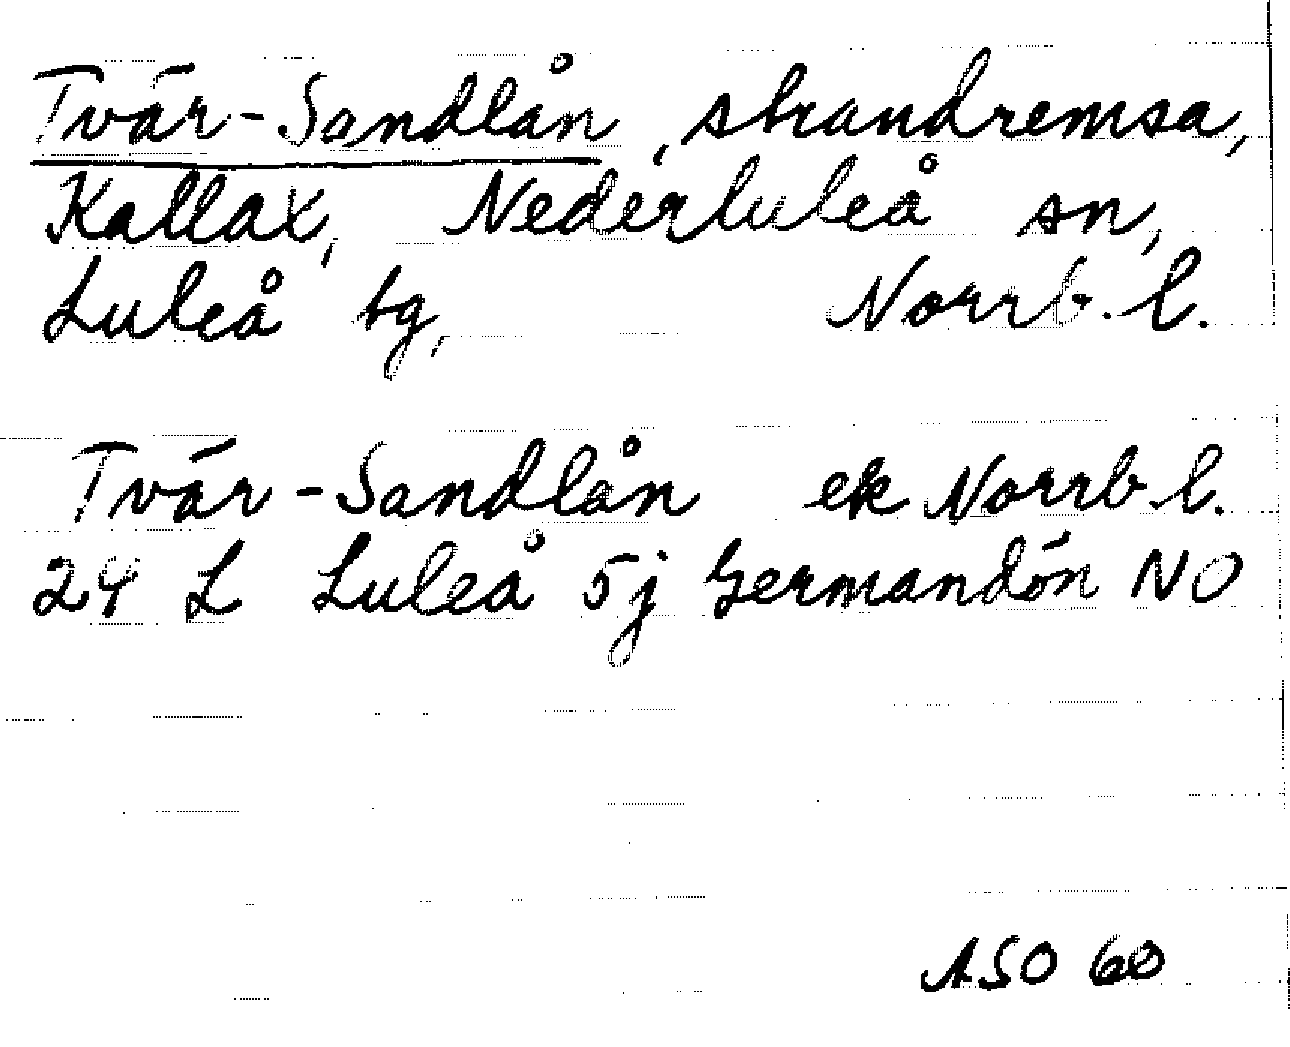 Tvär-Sandlån, strandremsa,
Kallax, Nederluleå sn,
Luleå tg, Norrb. l.
Tvär-Sandlån ek Norrb. l.
24 L Luleå 5j Germandön NO
ASO 60